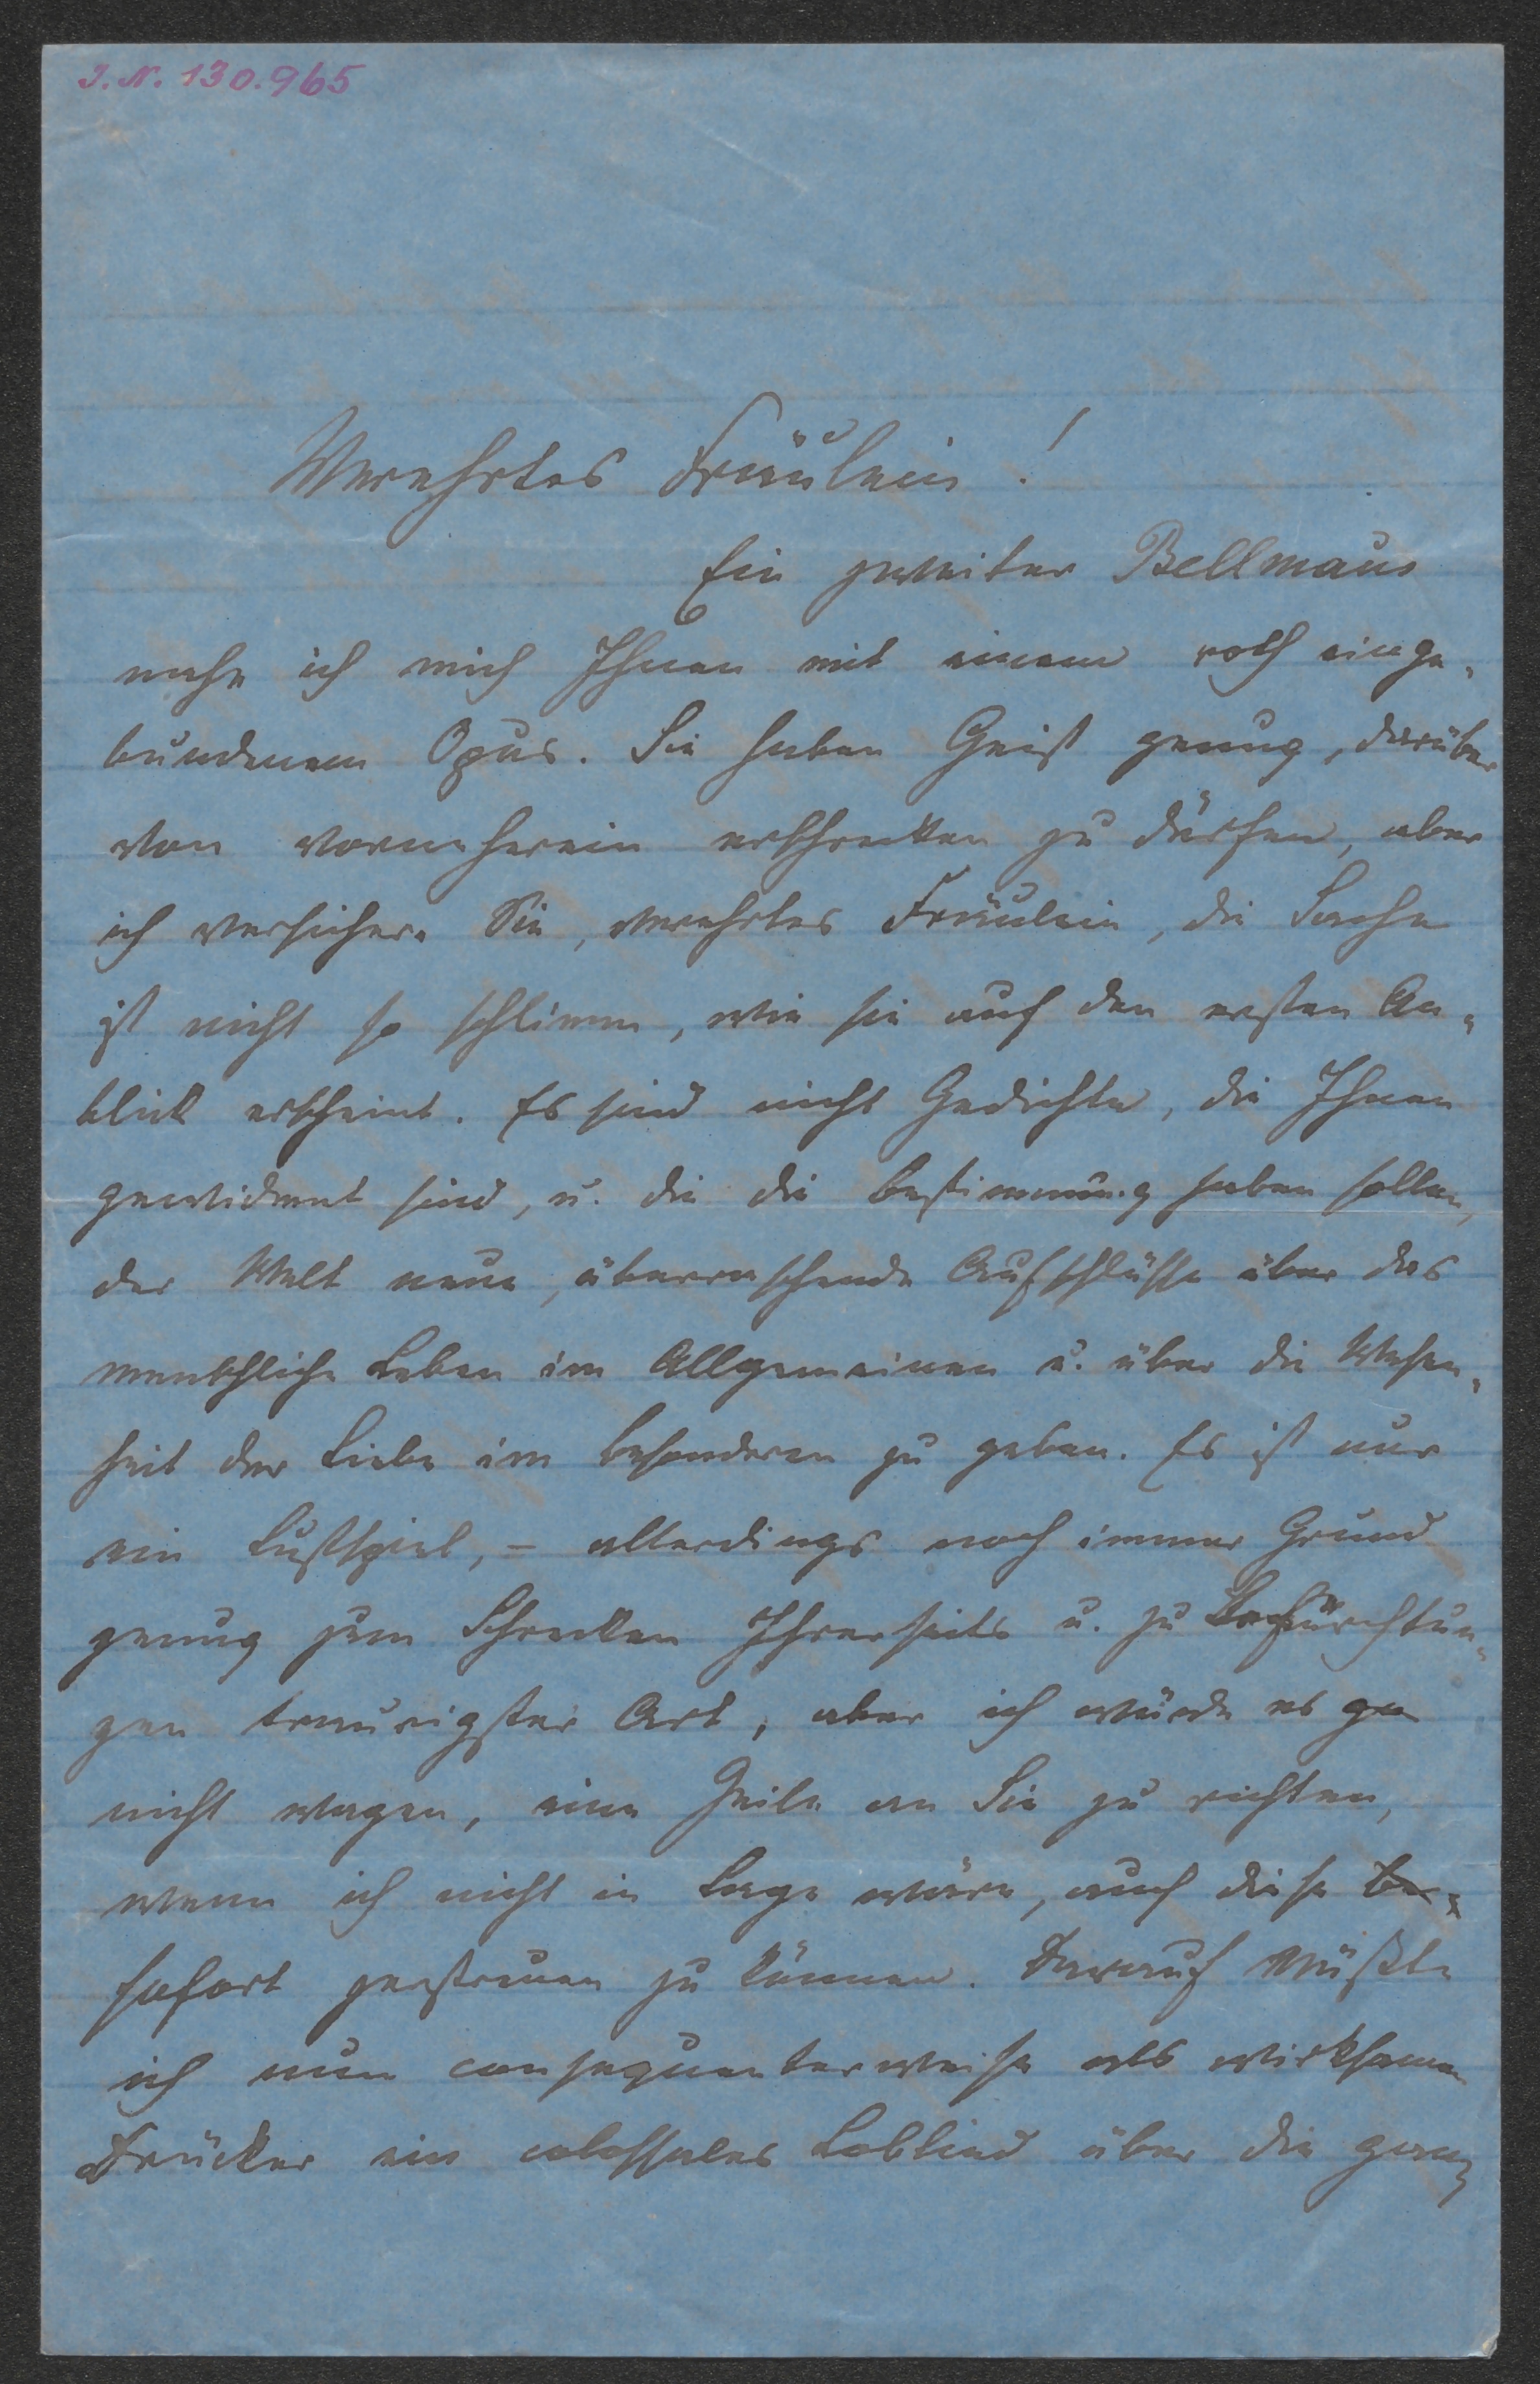 I. N. 130.965
Verehrtes Fräulein!
Ein zweiter Bellmaus
nahe ich mich Ihnen mit einem roth einge-
bundenem Opus. Sie haben Geist genug, darüber
von vorneherein erschrecken zu dürfen, aber
ich versichere Sie, verehrtes Fräulein, die Sache
ist nicht so schlimm, wie sie auf den ersten An-
blick erscheint. Es sind nicht Gedichte, die Ihnen
gewidmet sind, u. die die Bestimmung haben sollen,
der Welt neue, überraschende Aufschlüsse über das
menschliche Leben im Allgemeinen u. über die Wesen-
heit der Liebe im besonderen zu geben. Es ist nur
ein Lustspiel, – allerdings noch immer Grund
genug zum Schrecken Ihrerseits u. zu Befürchtun-
gen traurigster Art, aber ich würde es gar
nicht wagen, eine Zeile an Sie zu richten,
wenn ich nicht in Lage wäre, auch diese be-
sofort zerstreuen zu können. Darauf müßte
ich nun consequenterweise als wirksamen
Drücker ein colossales Loblied über die ganz